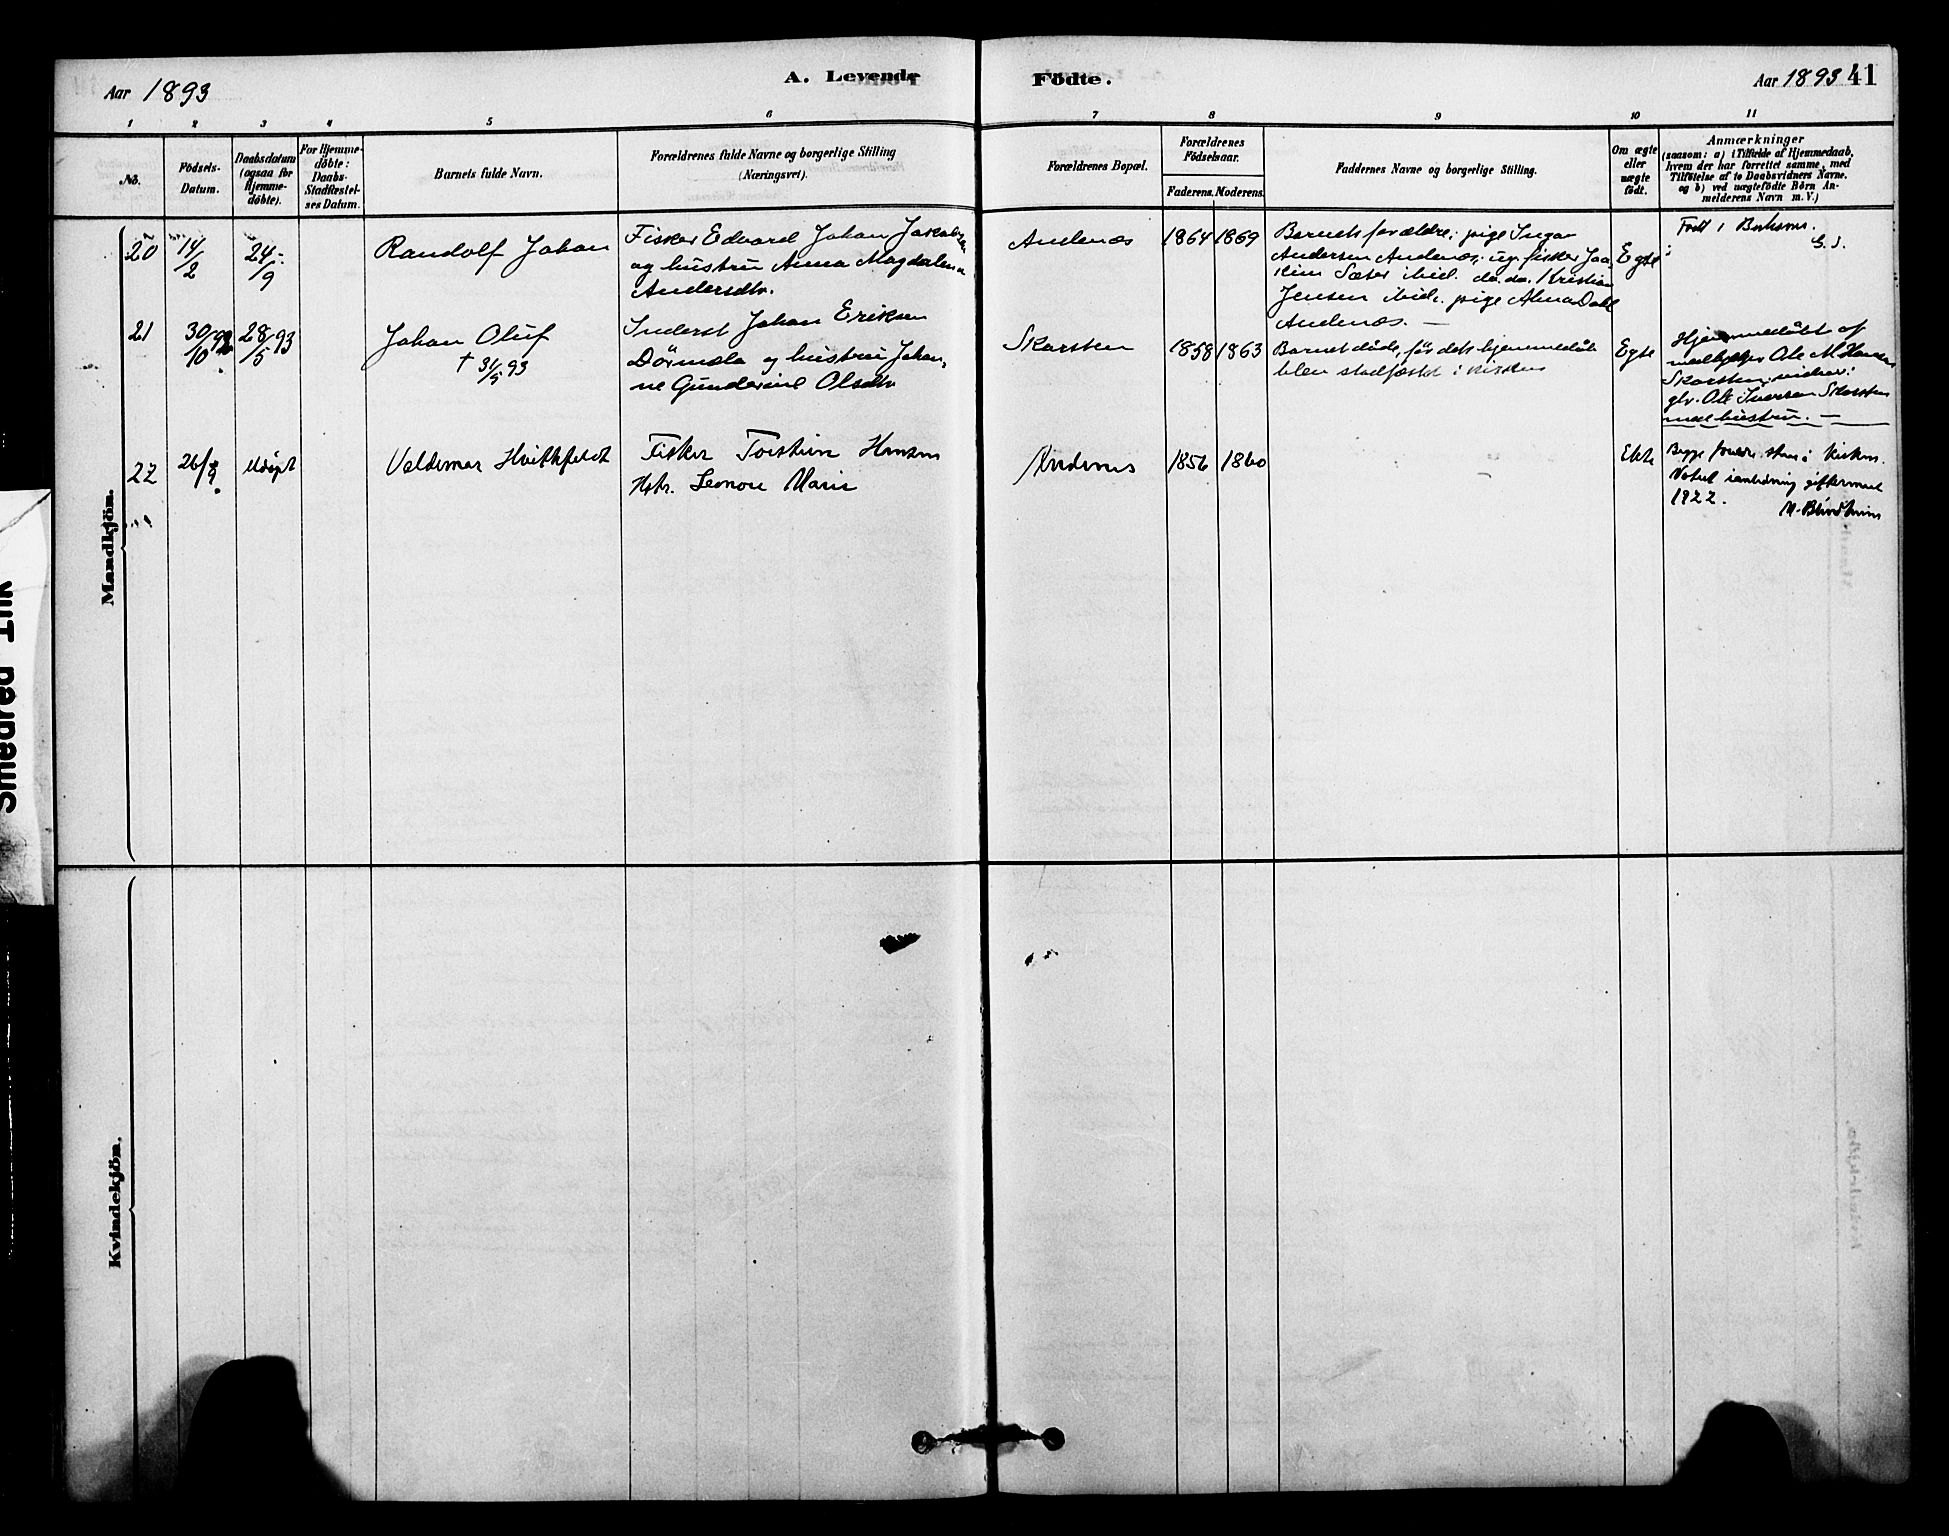 Aar 1893
A. Levende
Födte.
Aar 1893 41
1 2 3 4 5 6 7 8 9 10 11
No.
Födsels-
Datum.
Daabsdatum
(ogsaa for
Hjemme-
döbte).
For Hjemme-
döbte:
Daabs-
Stadfæstel-
ses Datum.
Barnets fulde Navn.
Forældrenes fulde Navne og borgerlige Stilling
(Næringsvei).
Forældrenes Bopæl.
Forældrenes
Födselsaar.
Faderens. Moderens.
Faddernes Navne og borgerlige Stilling.
Om ægte
eller
uægte
födt.
Anmærkninger
(saasom: a) i Tilfælde af Hjemmedaab,
hvem der har forrettet samme, med
Tilföielse af to Daabsvidners Navne.
og b) ved uægtefödte Börn An-
melderens Navn m. V.)
Mandkjön.
20
14/2
24/9
Randolf Johan
Fisker Edvard Johan Jakobsen
og hustru Anna Magdalena
Andersdtr.
Andenæs
1864 1869
Barnets forældre; pige Inga
Andersen Andenæs; ug. fisker Joa-
kim Sæter ibid. do. do. Kristian
Jensen ibid. pige Alma Dahl
Andenæs. —
Egte
Født i
21
30/10 92
28/5 93
Johan Oluf
† 31/5 93
Inderst Johan Eriksen
og hustru Johan-
ne Olsdtr
Skarsten
1858 1863
Barnet døde, før dets hjemmedåb
blev stadfæstet i kirken
Egte
Hjemmedøbt af
Ole M Hansen
Skarsten; vidner:
Ole Iversen Skarsten
med hustru. —
22
26/
Udöpt
Valdemar Hvitfeldt
Fisker Torstein Hansen
Hstr. Leonore Marie
Andenes
1856 1860
–
Ekte
Begge i kirken.
Notert i anledning giftermaal
1922.
M. Blindheim
Kvindekjön.